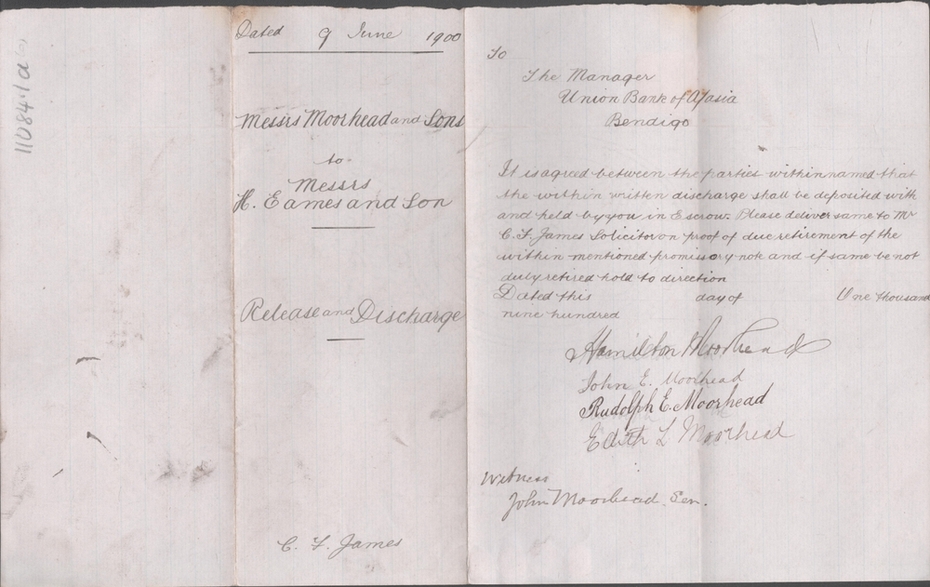 11084.1a
Dated 9 June 1900
Messrs Moorhead and Sons
to
Messrs
H. Eames and Son
Release and Discharge
C. F. James
To
The Manager
Union Bank of A/asia
Bendigo
It is agreed between the parties within named that
the within written discharge shall be deposited with
and held by you in Escrow. Please deliver same to Mr
C. F. James Solicitor on proof of due retirement of the
within mentioned promissory note and if same be not
duly retired hold to direction
Dated this day of One thousand
nine hundred
Hamilton Moorhead
John E. Moorhead
Rudolph E. Moorhead
Edith L Moorhead
Witness
John Moorhead. Sen.